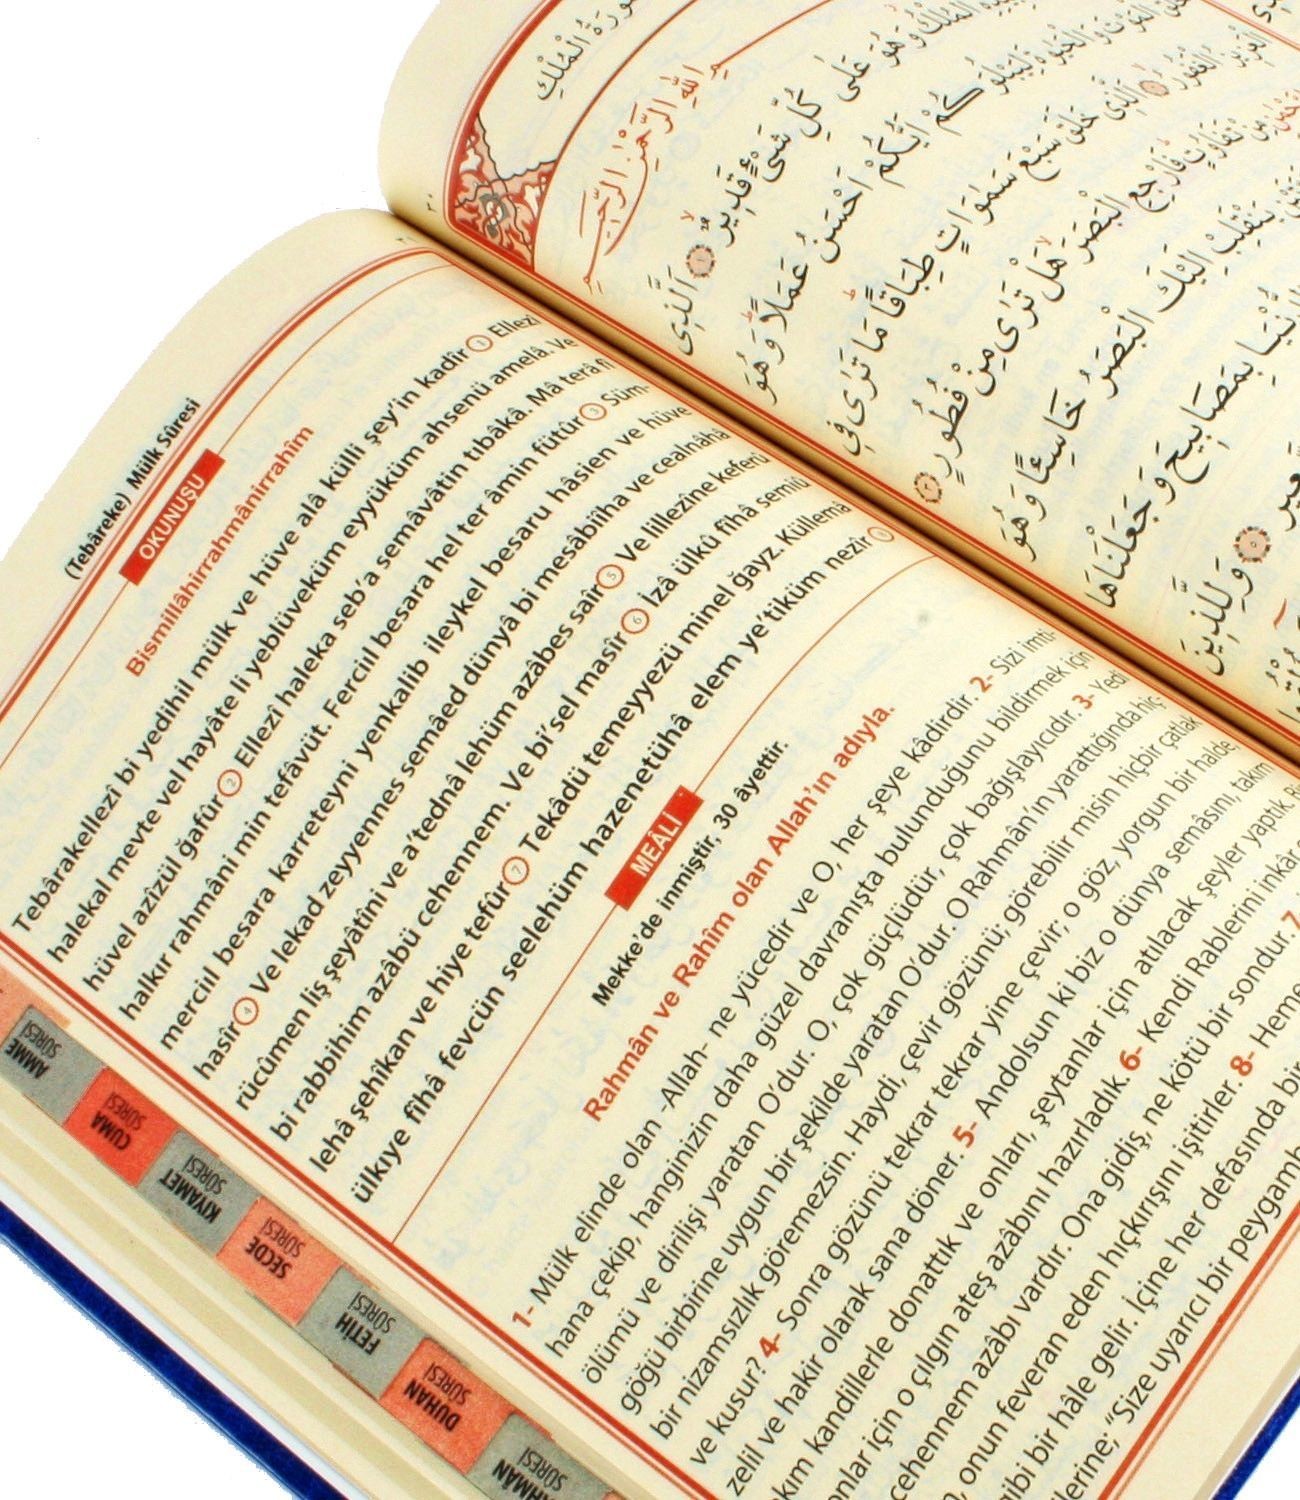 (Tebâreke) Mülk Sûresi
OKUNUŞU
Bismillâhirrahmânirrahîm
Tebârakellezî bi yedihil mülk ve hüve alâ külli şey'in kadîr 1 Ellezî
halekal mevte vel hayâte li yeblüveküm eyyüküm ahsenü amelâ. Ve
hüvel azîzül ğafûr 2 Ellezî haleka seb'a semâvâtin tıbâkâ. Mâ terâ fî
halkır rahmâni min tefâvüt. Ferciıl besara hel ter âmin fütûr 3 Süm-
merciıl besara karreteyni yenkalib ileykel besaru hâsien ve hüve
hasîr 4 Ve lekad zeyyennes semâed dünyâ bi mesâbîiha ve cealnâhâ
rücûmen liş şeyâtîni ve a'tednâ lehüm azâbes saîr 5 Ve lillezîne keferû
bi rabbihim azâbü cehennem. Ve bi'sel masîr 6 İzâ ülkû fîhâ semiû
lehâ şehîkan ve hiye tefûr 7 Tekâdü temeyyezü minel ğayz. Küllemâ
ülkıye fîhâ fevcün seelehüm hazenetühâ elem ye'tiküm nezîr 8
MEÂLİ
Mekke'de inmiştir, 30 âyettir.
Rahmân ve Rahîm olan Allah'ın adıyla.
1- Mülk elinde olan -Allah- ne yücedir ve O, her şeye kâdirdir. 2- Sizi imti-
hana çekip, hanginizin daha güzel davranışta bulunduğunu bildirmek için
ölümü ve dirilişi yaratan O'dur. O, çok güçlüdür, çok bağışlayıcıdır. 3- Yedi
göğü birbirine uygun bir şekilde yaratan O'dur. O Rahmân'ın yarattığında hiç-
bir nizamsızlık göremezsin. Haydi, çevir gözünü; görebilir misin hiçbir çatlak
ve kusur? 4- Sonra gözünü tekrar tekrar yine çevir; o göz, yorgun bir halde,
zelil ve hakir olarak sana döner. 5- Andolsun ki biz o dünya semâsını, takım
kım kandillerle donattık ve onları, şeytanlar için atılacak şeyler yaptık.
onlar için o çılgın ateş azabını hazırladık. 6- Kendi Rablerini inkâr
cehennem azâbı vardır. Ona gidiş, ne kötü bir sondur. 7
, onun feveran eden hıçkırışını işitirler. 8- Heme
gibi bir hâle gelir. İçine her defasında bir
lerine; "Size uyarıcı bir peygamb
AMME SÛRESİ
CUMA SÛRESİ
KIYAMET SÛRESİ
SECDE SÛRESİ
FETİH SÛRESİ
DUHAN SÛRESİ
RAHMÂN SÛRESİ
سُورَةُ الْمُلْكِ
اللّٰهِ الرَّحْمٰنِ الرَّحِيمِ
الْمُلْكُ وَهُوَ عَلٰى كُلِّ شَيْءٍ قَدِيرٌ ۱ اَلَّذِى
الْمَوْتَ وَالْحَيٰوةَ لِيَبْلُوَكُمْ اَيُّكُمْ اَحْسَنُ عَمَلًا وَهُوَ
الْعَزِيزُ الْغَفُورُ ۲ اَلَّذِى خَلَقَ سَبْعَ سَمٰوَاتٍ طِبَاقًا مَا تَرٰى فِى
مِنْ تَفَاوُتٍ فَارْجِعِ الْبَصَرَ هَلْ تَرٰى مِنْ فُطُورٍ ۳
يَنْقَلِبْ اِلَيْكَ الْبَصَرُ خَاسِئًا وَهُوَ
بِمَصَابِيحَ وَجَعَلْنَاهَا
۵ وَلِلَّذِينَ